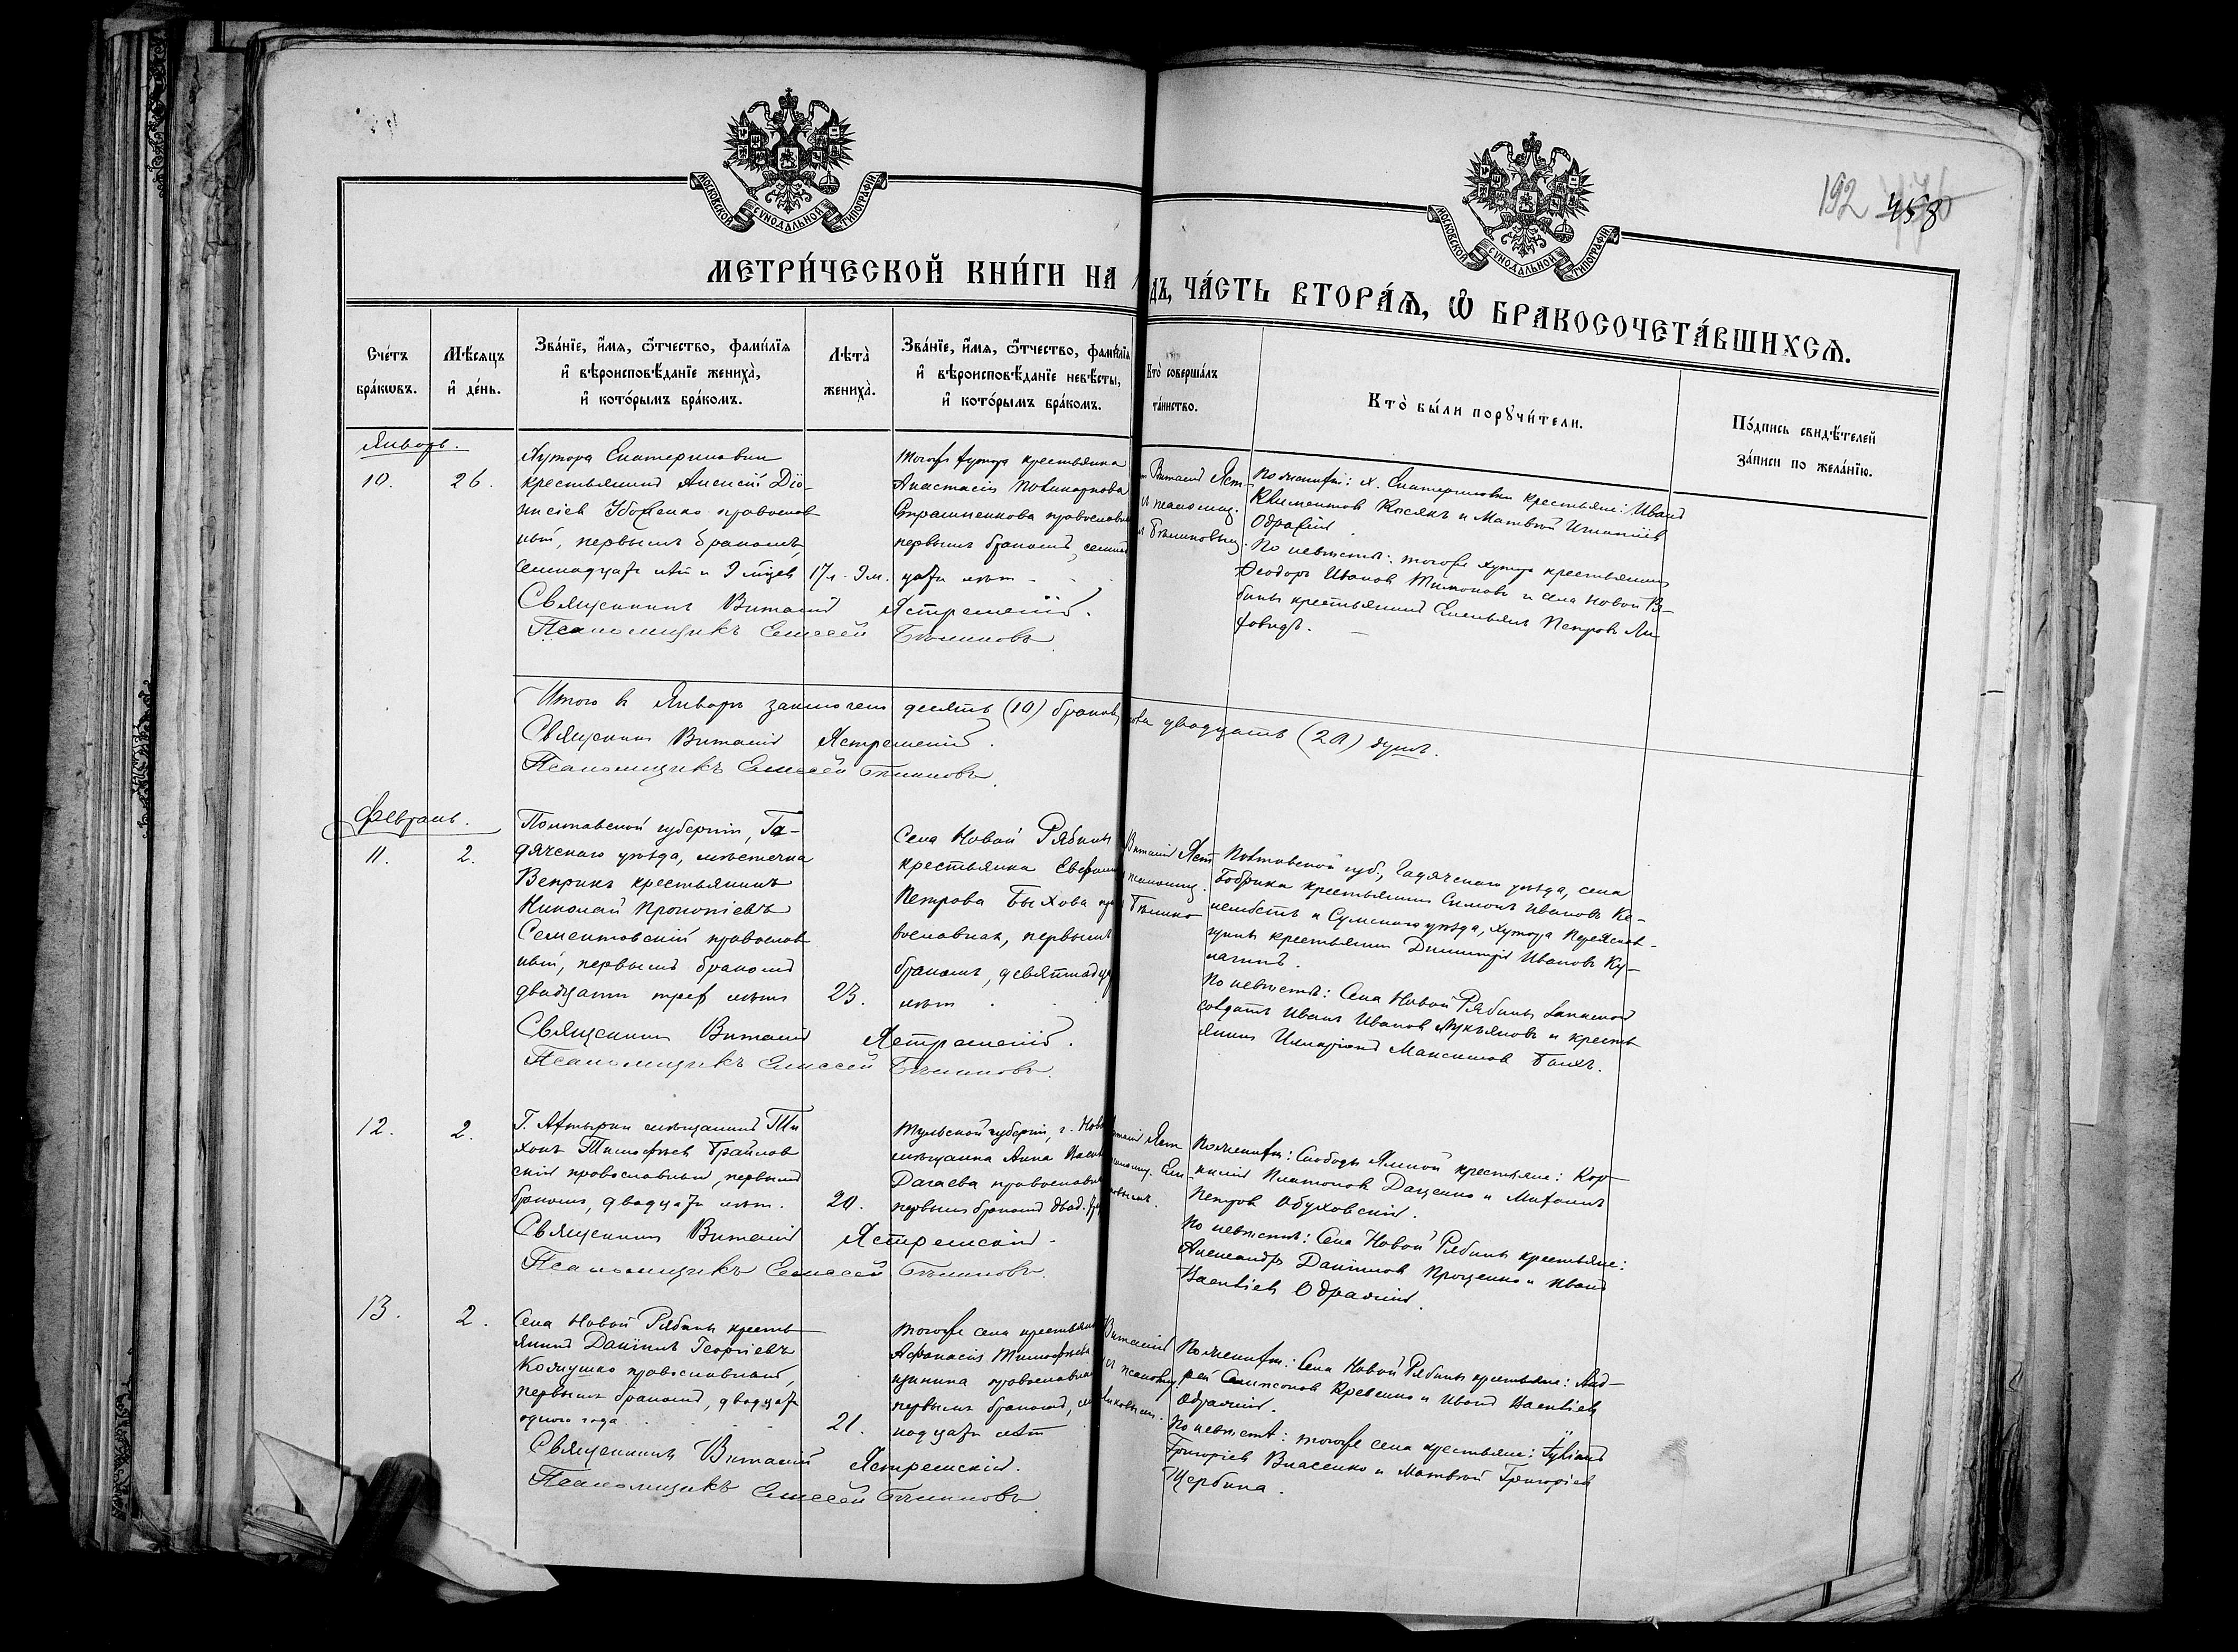 192 458
МОСКОВСКОЙ СѴНОДАЛЬНОЙ ТИПОГРАФІИ
МОСКОВСКОЙ СѴНОДАЛЬНОЙ ТИПОГРАФІИ
МЕТРИ́ЧЕСКОЙ КНИ́ГИ НА
ДЪ, ЧА́СТЬ ВТОРА́Ѧ, Ѽ БРАКОСОЧЕТА́ВШИХСѦ.
Сче́тъ бра́кѡвъ.
Мѣ́сѧцъ и҆ де́нь.
Зва́нїе, и҆́мѧ, ѻ҆́тчество, фами́лїѧ
и҆ вѣроисповѣ́данїе жениха̀,
и҆ кото́рымъ бра́комъ.
Лѣта̀ жениха̀.
Зва́нїе, и҆́мѧ, ѻ҆́тчество, фами́лїѧ
и҆ вѣроисповѣ́данїе невѣ́сты,
и҆ кото́рымъ бра́комъ.
Кто̀ соверша́лъ
та́инство.
Кто̀ бы́ли порꙋчи́тели.
По́дпись свидѣ́телей
за́писи по жела́нїю.
Январь.
10. 26.
Хутора Екатериновки
крестьянинъ Алексій Діо-
нисіев православ
ный, первымъ бракомъ,
семнадцати лѣт и 9 мцев
17 л. 9 м.
Тогоже хутора крестьянка
Анастасія Поликарпова
Страшненкова православн
первымъ бракомъ, семнад
цати лѣт
Виталій Яст-
псаломщ.
Бѣликовым.
По женихѣ: х. Екатериновки крестьяне: Иванъ
Климентов Косякъ и Матвѣй Игнатіев
По невѣстѣ: тогоже хутора крестьянинъ
Ѳеодоръ Иванов Тимоновъ и села Новой Ря-
бины крестьянинъ Емельянъ Петровъ Ли-
ховидъ.
Священникъ Виталій Ястремскій.
Псаломщикъ Елисей Бѣликовъ
Итого в Январѣ заключено десять (10) браков,
двадцать (20) душъ.
Священникъ Виталій Ястремскій.
Псаломщикъ Елисей Бѣликовъ.
Февраль.
11. 2.
Полтавской губерніи, Га-
дячскаго уѣзда, мѣстечка
Веприкъ крестьянинъ
Николай Прокопіевъ
Сементовскій православ
ный, первымъ бракомъ
двадцати трех лѣтъ
23.
Села Новой Рябины
крестьянка
Петрова Быхова пра
вославная, первымъ
бракомъ, девятнадца
лѣт
Виталій Яст-
псаломщ.
Бѣлико
Полтавской губ., Гадячскаго уѣзда, села
Бобрика крестьянинъ Симонъ Иванов Ке-
и Сумскаго уѣзда, хутора Переяслав-
крестьянинъ Димитрій Иванов Ку-
По невѣстѣ: Села Новой Рябины запасной
солдатъ Иванъ Иванов Лукьяновъ и кресть-
янинъ Иларіонъ Максимов
Священникъ Виталій Ястремскій.
Псаломщикъ Елисей Бѣликовъ.
12. 2.
Г. Ахтырки мѣщанинъ Ти
хонъ Тимоѳеев Брайлов
скій православный, первымъ
бракомъ, двадцати лѣт.
20.
Тульской губерніи, г. Ново
мѣщанка Анна
Дагаева православн
первымъ бракомъ двад.
Яст-
Ели
ковымъ.
По женихѣ: Слободы Ямной крестьяне: Кор-
нилій Платонов Даценко и Михаилъ
Петров Обуховскій.
По невѣстѣ: Села Новой Рябины крестьяне:
Александръ Даніилов Проценко и Иванъ
Священникъ Виталій Ястремскій.
Псаломщикъ Елисей Бѣликовъ.
13. 2.
Села Новой Рябины кресть
янинъ Даніилъ Георгіевъ
православный,
первымъ бракомъ, двадцати
одного года
21.
Тогоже села крестьянка
Аѳанасія Тимоѳеева
православная
первымъ бракомъ,
надцати лѣт
Виталій
псаломщ.
ликовым.
По женихѣ: Села Новой Рябины крестьяне: Анд-
рей и Иванъ
По невѣстѣ: тогоже села крестьяне:
Григоріев Власенко и Матвѣй Григоріев
Щербина.
Священникъ Виталій Ястремскій.
Псаломщикъ Елисей Бѣликовъ